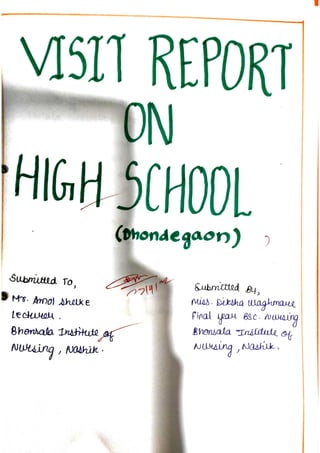 VISIT REPORT
ON
HIGH SCHOOL
(Dhondegaon)
Submitted To,
Mr. Amol Shelke
Lecturer.
Bhonsala Institute of
Nursing, Nashik.
Submitted By,
Miss. Diksha Waghmare
Final year BSC. Nursing
Bhonsala Institute of
Nursing, Nashik.